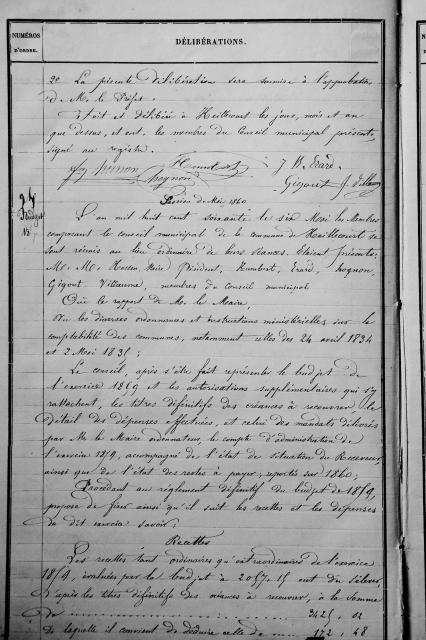 NUMÉROS
D'ORDRE.
DÉLIBÉRATIONS.
2° La présente délibération sera soumise à l'approbation
de M. le Préfet.
Fait et délibéré à Heillecourt les jour, mois et an
que dessus, et ont, les membres du Conseil municipal présents,
signé au registre.
J. B. Erard.
Gigout J. Villaume
Session de Mai 1860
24
Budget
L'an mil huit cent soixante le six Mai les Membres
composant le conseil municipal de la commune de Heillecourt se
sont réunis au lieu ordinaire de leurs séances. Etaient présents:
M. M. Maire, Président, Humbert, Erard, Hognon,
Gigout, Villaume, membres du Conseil municipal
Ouï le rapport de M. le Maire,
Vu les diverses ordonnances et instructions ministérielles sur la
comptabilité des communes, notamment celles des 24 avril 1834
et 2 Mai 1835;
Le conseil, après s'être fait représenter le budget de
l'exercice 1859 et les autorisations supplémentaires qui s'y
rattachent, les titres définitifs des créances à recouvrer, le
détail des dépenses effectuées, et celui des mandats délivrés
par M. le Maire ordonnateur, le compte d'administration de
l'exercice 1859, accompagné de l'état de situation du Receveur,
ainsi que de l'état des restes à payer, reportés sur 1860;
Procédant au règlement définitif du budget de 1859,
propose de fixer ainsi qu'il suit les recettes et les dépenses
du dit exercice savoir:
Recettes
Les recettes tant ordinaires qu'extraordinaires de l'exercice
1859, évaluées par le budget à 2057.15 ont dû s'élever,
d'après les titres définitifs des créances à recouvrer, à la somme
de 2425. 02
de laquelle il convient de déduire celle de 172. 48